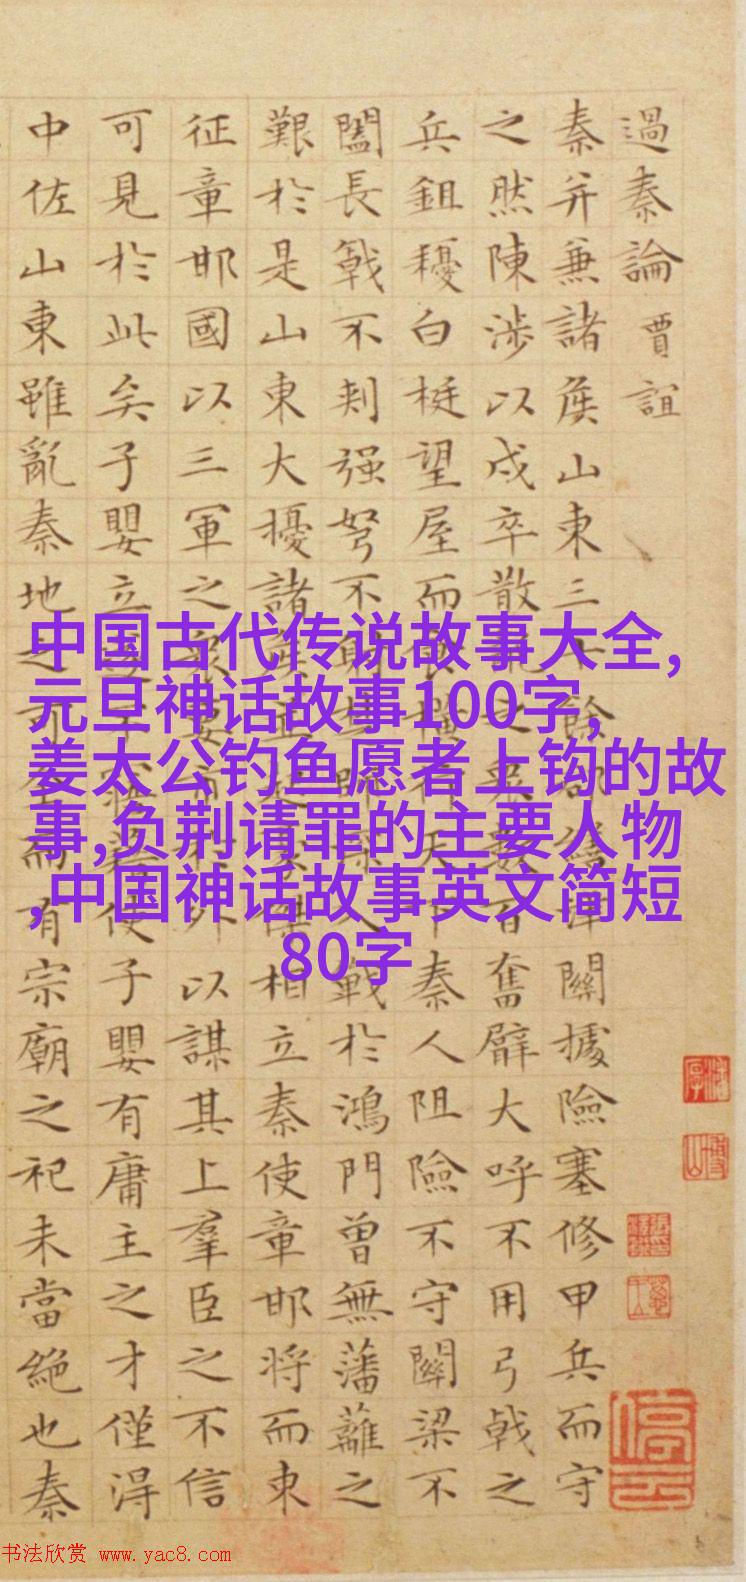 過秦論 賈誼
秦并兼諸侯山東三十餘郡繕津關據險塞修甲兵而守
之然陳涉以戍卒散亂之眾數百奮臂大呼不用弓戟之
兵鉏耰白梃望屋而食橫行天下秦人阻險不守關梁不
闔長戟不刺强弩不射楚師深入戰於鴻門曾無藩蘺之
艱於是山東大擾諸侯並起豪傑相立秦使章邯将而東
征章邯國以三軍之眾要市於外以謀其上羣臣之不信
可見於此矣子嬰立遂不寤藉使子嬰有庸主之才僅得
中佐山東雖亂秦地之可全而有宗廟之祀未當絶也秦
中国古代传说故事大全,
元旦神话故事100字,
姜太公钓鱼愿者上钩的故
事,负荆请罪的主要人物
,中国神话故事英文简短
80字
停云
书法欣赏 www.yac8.com